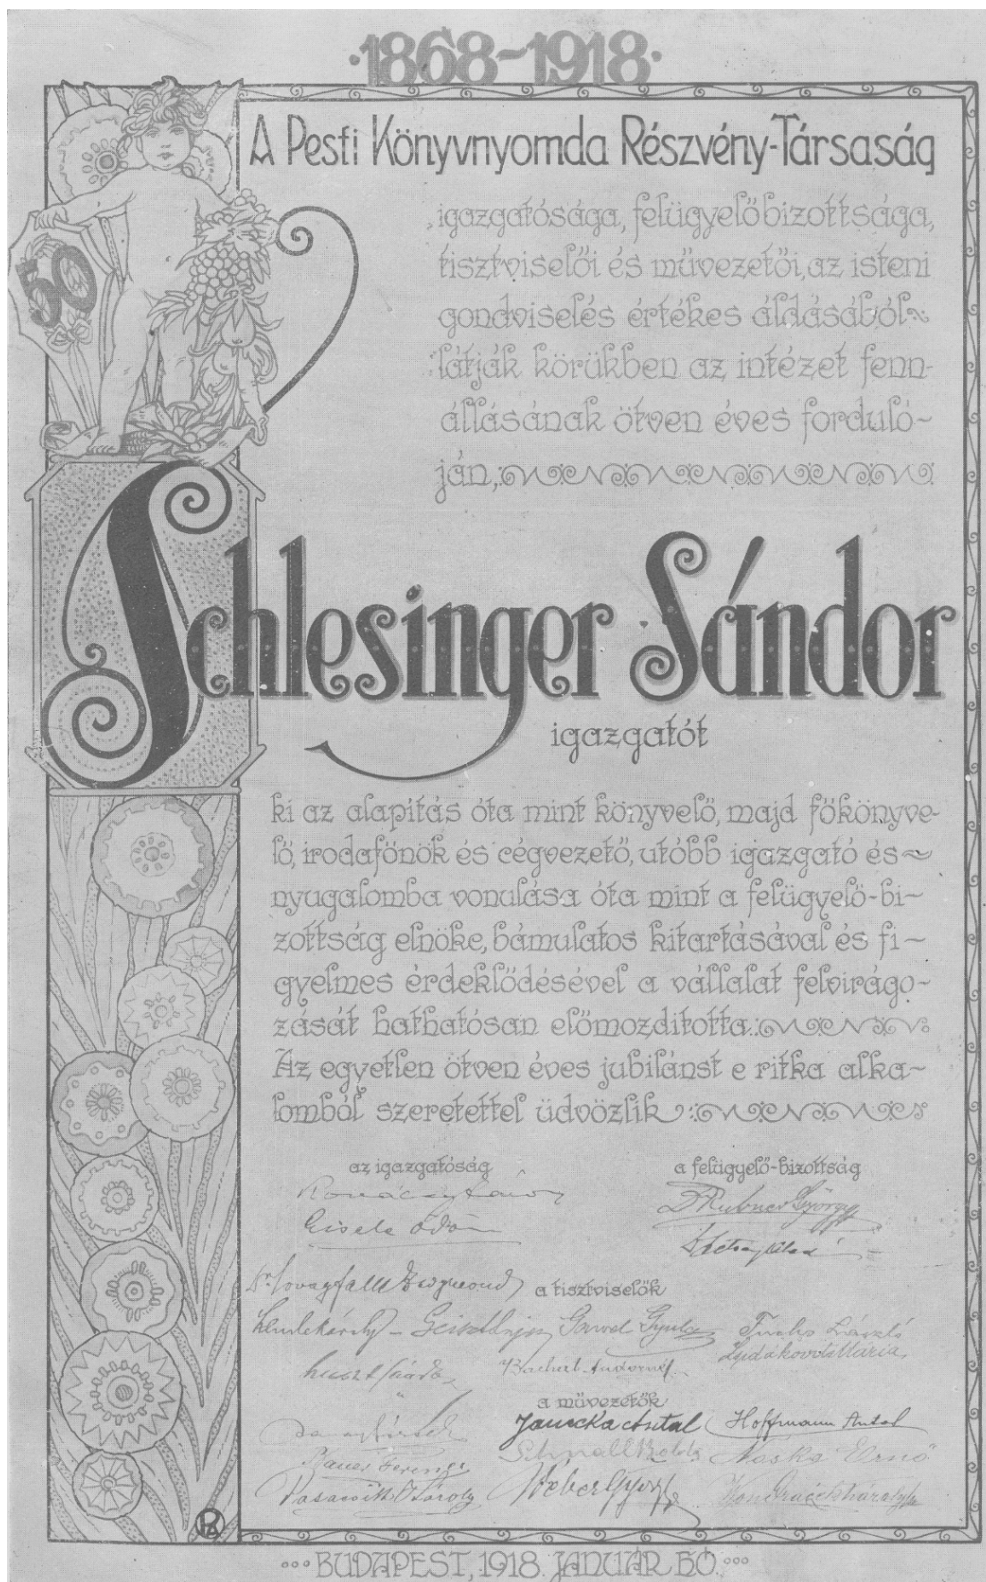 ·1868-1918·
A Pesti Könyvnyomda Részvény-Társaság
igazgatósága, felügyelőbizottsága,
tisztviselői és művezetői, az isteni
gondviselés értékes áldásából
látják körükben az intézet fenn-
állásának ötven éves forduló-
ján,
50
Schlesinger Sándor
igazgatót
ki az alapitás óta mint könyvelő, majd főkönyve-
lő, irodafőnök és cégvezető, utóbb igazgató és
nyugalomba vonulása óta mint a felügyelő-bi-
zottság elnöke, bámulatos kitartásával és fi-
gyelmes érdeklődésével a vállalat felvirágo-
zását hathatósan előmozditotta.
Az egyetlen ötven éves jubilánst e ritka alka-
lomból szeretettel üdvözlik:
az igazgatóság
a felügyelő-bizottság
Gisela Ödön
Dr Rubner György
a tisztviselők
Gyula
Fuchs László
Mária
a művezetők
Janicka Antal
Hoffmann Antal
Bauer Ferencz
Ernő
Károly
Weber György
BUDAPEST, 1918. JANUÁR HÓ.